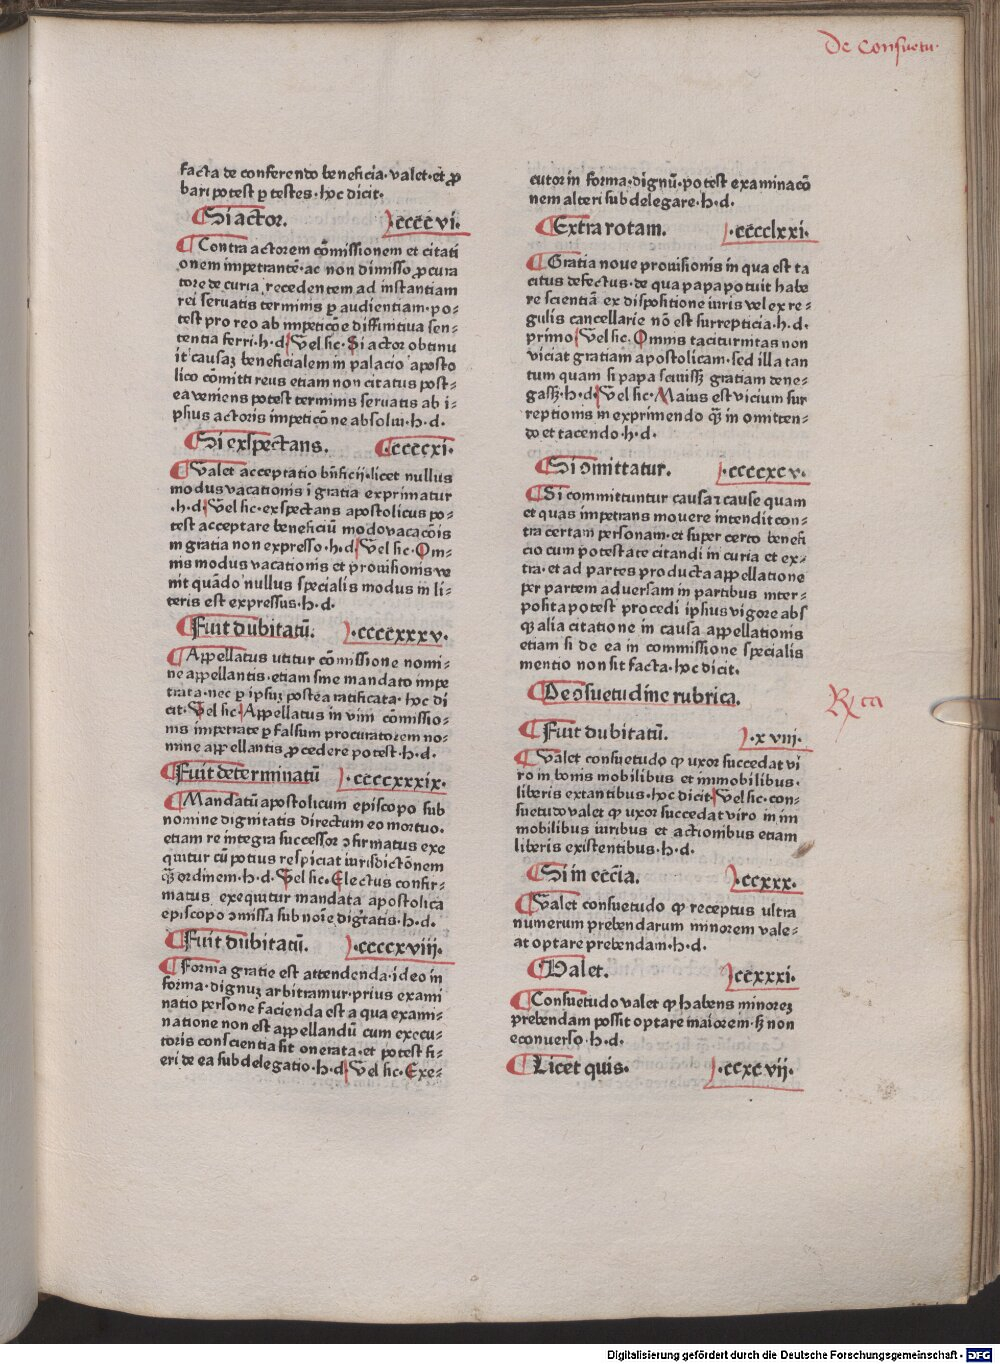 De consuetu·
facta de conferendo beneficia· valet· et ꝓ
bari potest ꝑ testes· hoc dicit·
Si actor. ·ccccvi·
Contra actorem cōmissionem et citati
onem impetrantē· ac non dimisso ꝓcura
tore de curia recedentem ad instantiam
rei seruatis terminis ꝑ audientiam· po⸗
test pro reo ab impeticōe diffinitiua sen⸗
tentia ferri· h· d· Vel sic· Si actor obtinu
it causaꝫ beneficialem in palacio aposto
lico cōmitti reus etiam non citatus post⸗
ea veniens potest terminis seruatis ab i⸗
psius actoris impeticōne absolui· h· d·
Si exspectans. ·ccccxi·
Valet acceptatio bn̄ficij· licet nullus
modus vacationis ī gratia exprimatur
·h· d· Vel sic· exspectans apostolicus po⸗
test acceptare beneficiū modo vacacōis
in gratia non expresso· h· d· Vel sic· Om⸗
nis modus vacationis et prouisionis ve
nit quādo nullus specialis modus in li⸗
teris est expressus· h· d·
Fuit dubitatū. ·ccccxxxv·
Appellatus vtitur cōmissione nomi⸗
ne appellantis· etiam sine mandato impe
trata· nec ꝑ ipsuꝫ postea ratificata· hoc di
cit· Vel sic· Appellatus in vim cōmissio⸗
nis impetrate ꝑ falsum procuratorem no⸗
mine appellantis ꝓcedere potest· h· d·
Fuit determinatū ·ccccxxxix·
Mandatū apostolicum episcopo sub
nomine dignitatis directum eo mortuo·
etiam re integra successor ↄfirmatus exe
quitur cū potius respiciat iurisdictōnem
ꝙ̄ ordinem· h· d· Vel sic· Electus confir⸗
matus exequitur mandata apostolica
episcopo ↄmissa sub noīe diḡtatis· h· d·
Fuit dubitatū. ·ccccxviii·
Forma gratie est attendenda· ideo in
forma· dignuꝫ arbitramur· prius exami
natio persone facienda est a qua exami⸗
natione non est appellandū cum execu⸗
toris conscientia sit onerata· et potest fi⸗
eri de ea subdelegatio· h· d· Vel sic· Exe⸗
cutor in forma· dignū· potest examinacō
nem alteri subdelegare· h· d·
Extra rotam. ·cccclxxi·
Gratia noue prouisionis in qua est ta
citus defectus· de qua papa potuit habe
re scientiā ex dispositione iuris vel ex re⸗
gulis cancellarie nō est surrepticia· h· d·
primo Vel sic· Omnis taciturnitas non
viciat gratiam apostolicam· sed illa tan
tum quam si papa sciuissꝫ gratiam dene⸗
gassꝫ· h· d· Vel sic· Maius est vicium sur
reptionis in exprimendo ꝙ̄ in omitten⸗
do et tacendo h· d·
Si ↄmittatur. ·ccccxcv·
Si committuntur causa ⁊ cause quam
et quas impetrans mouere intendit con⸗
tra certam personam· et super certo benefi
cio cum potestate citandi in curia et ex⸗
tra· et ad partes producta appellatione
per partem aduersam in partibus inter⸗
posita potest procedi ipsius vigore abs
ꝙ alia citatione in causa appellationis
etiam si de ea in commissione specialis
mentio non sit facta· hoc dicit·
De ↄsuetudine rubrica.
Rca
Fuit dubitatū. ·xviii·
Valet consuetudo ꝙ vxor succedat vi
ro in bonis mobilibus et immobilibus·
liberis extantibus· hoc dicit· Vel sic· con⸗
suetudo valet ꝙ vxor succedat viro in im
mobilibus iuribus et actionibus etiam
liberis existentibus· h· d·
Si in eccīa. ·ccxxx·
Valet consuetudo ꝙ receptus vltra
numerum prebendarum minorem vale⸗
at optare prebendam· h· d·
Valet. ccxxxi·
Consuetudo valet ꝙ habens minoreꝫ
prebendam possit optare maiorem· sꝫ non
econuerso· h· d·
Licet quis· ·ccxcvij·
Digitalisierung gefördert durch die Deutsche Forschungsgemeinschaft - DFG